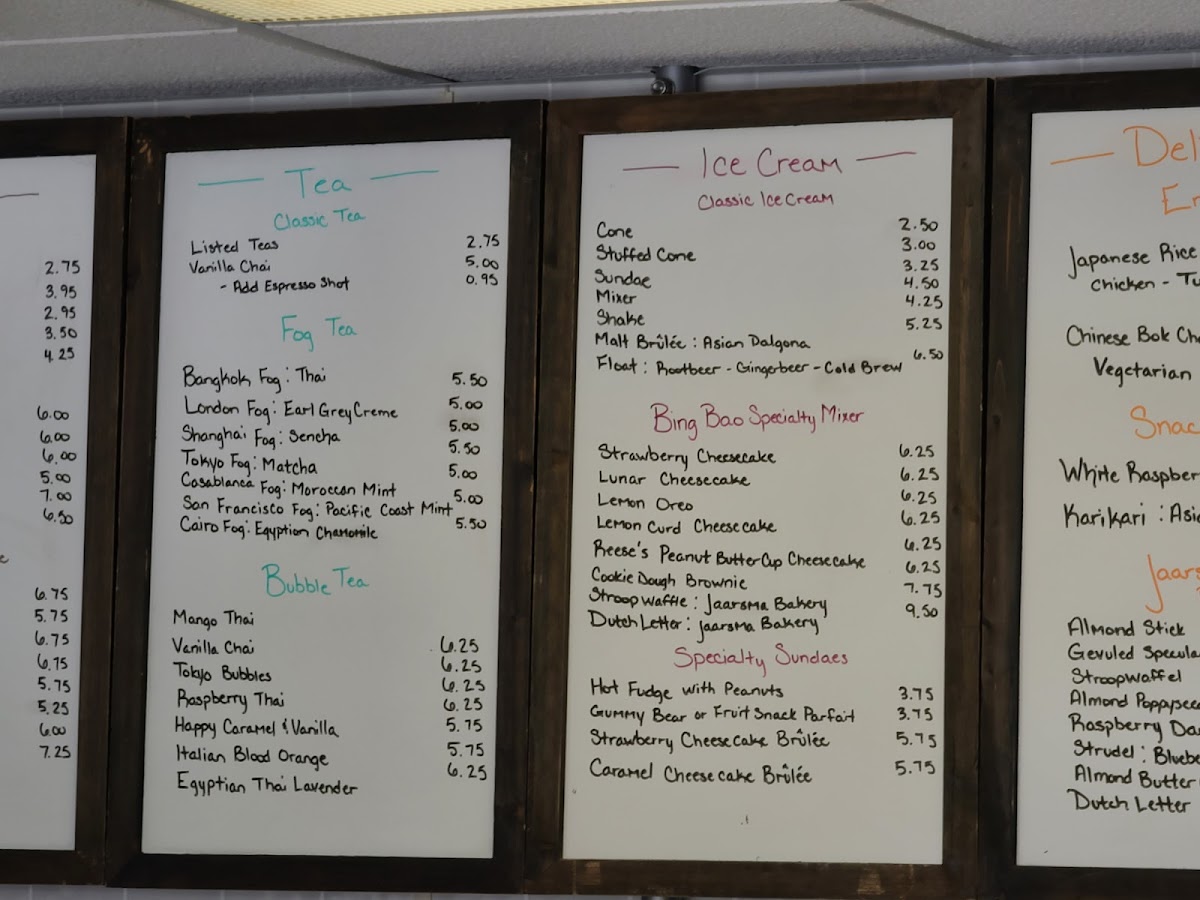 2.75
3.95
2.95
3.50
4.25
6.00
6.00
6.00
5.00
7.00
6.50
6.75
5.75
6.75
6.75
5.75
5.25
6.00
7.25
Tea
Classic Tea
Listed Teas 2.75
Vanilla Chai 5.00
- Add Espresso Shot 0.95
Fog Tea
Bangkok Fog: Thai 5.50
London Fog: Earl Grey Creme 5.00
Shanghai Fog: Sencha 5.00
Tokyo Fog: Matcha 5.50
Casablanca Fog: Moroccan Mint 5.00
San Francisco Fog: Pacific Coast Mint 5.00
Cairo Fog: Egyption Chamomile 5.50
Bubble Tea
Mango Thai 6.25
Vanilla Chai 6.25
Tokyo Bubbles 6.25
Raspberry Thai 6.25
Happy Caramel & Vanilla 5.75
Italian Blood Orange 5.75
Egyptian Thai Lavender 6.25
Ice Cream
Classic Ice Cream
Cone 2.50
Stuffed Cone 3.00
Sundae 3.25
Mixer 4.50
Shake 4.25
Malt Brûlée : Asian Dalgona 5.25
Float : Rootbeer - Gingerbeer - Cold Brew 6.50
Bing Bao Specialty Mixer
Strawberry Cheesecake 6.25
Lunar Cheesecake 6.25
Lemon Oreo 6.25
Lemon Curd Cheesecake 6.25
Reese's Peanut Butter Cup Cheesecake 6.25
Cookie Dough Brownie 6.25
Stroopwaffle : Jaarsma Bakery 7.75
Dutch Letter : Jaarsma Bakery 9.50
Specialty Sundaes
Hot Fudge with Peanuts 3.75
Gummy Bear or Fruit Snack Parfait 3.75
Strawberry Cheesecake Brûlée 5.75
Caramel Cheesecake Brûlée 5.75
Japanese Rice
Chicken -
Chinese Bok
Vegetarian
White
Karikari :
Almond Stick
Gevuled
Stroopwaffel
Almond
Raspberry
Strudel :
Almond Butter
Dutch Letter